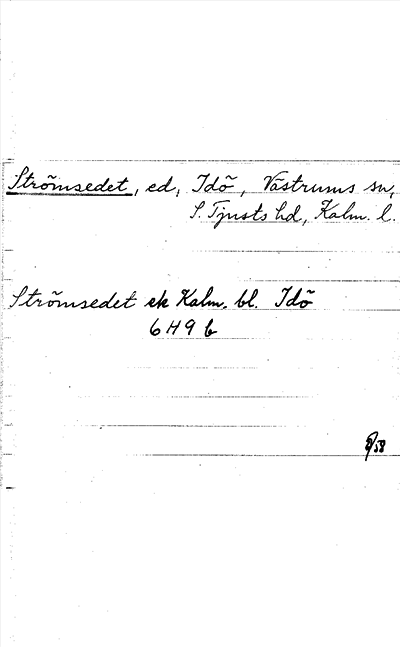 Strömsedet, ed, Idö, Västrums sn,
S. Tjusts hd, Kalm. l.
Strömsedet ek Kalm. bl. Idö
6H9b